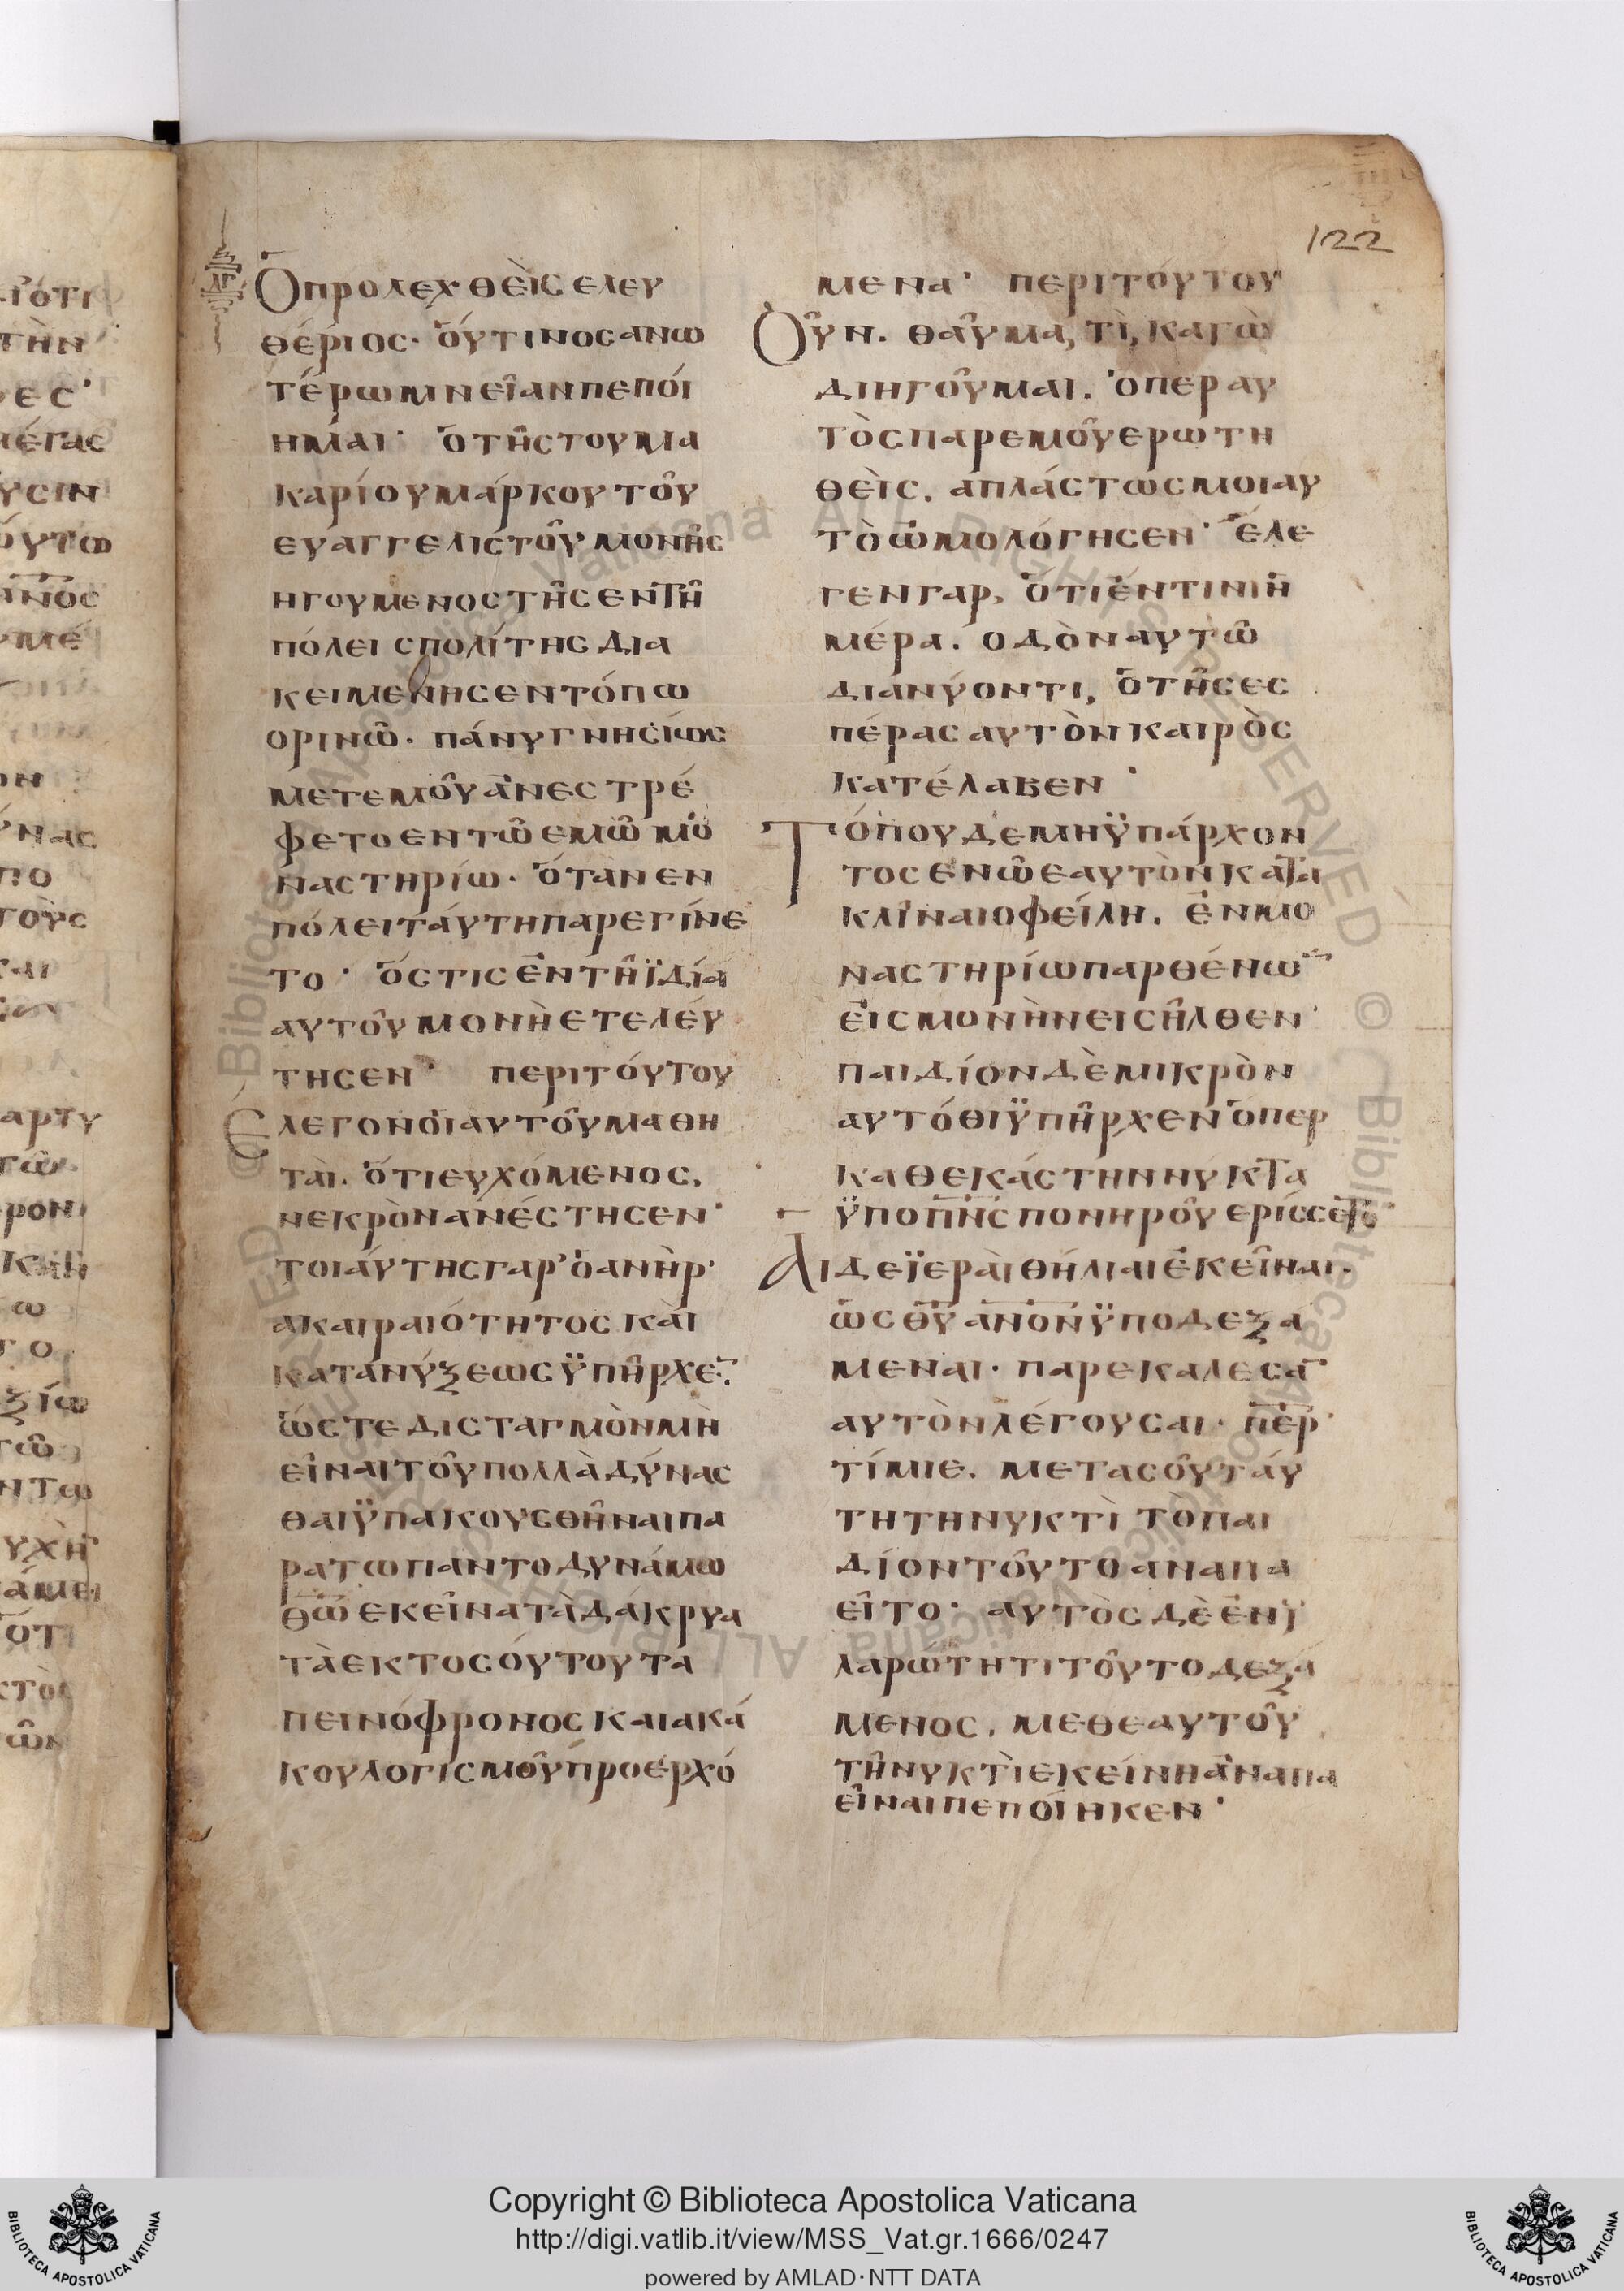 122
λγ
Ὁ προλεχθὲις ελευ
θέριος· ὅυτινος ανω
τέρω μνεῖαν πεπόι
ημαι· ὁ τῆς του μα
καρίου μάρκου τοῦ
ευαγγελιστοῦ μονῆς
ηγουμενος τῆς εν τῆ
πόλει σπολίτης δια
κειμενης εν τόπω
ορινῶ· πάνυ γνησίως
μετ εμοῦ ἀνεστρέ
φετο εν τῶ εμῶ μο
ναστηρίω· ὅταν εν
πόλει τάυτη παρεγίνε
το· ὅστις ἐν τῆ ϊδία
αυτοῦ μονὴ ετελέυ
τησεν· περι τόυτου
Ελεγον ὁι αυτοῦ μαθη
ται. ὅτι ευχόμενος,
νεκρὸν ανέστησεν·
τοιάυτης γαρ ὁ ανὴρ·
ακαιραιότητος και
κατανύξεως ϋπῆρχε̅·
ὥστε δισταγμὸν μὴ
εἶναι τοῦ πολλὰ δύνας
θαι ϋπακουσθῆναι πα
ρα τω παντοδυνάμω
θ̅ω̅ εκεῖνα τὰ δάκρυα
τὰ εκ τοσόυτου τα
πεινόφρονος και ακά
κου λογισμοῦ προερχό
μενα· περι τόυτου
Οῦν. θαῦμα, τὶ, καγὼ
διηγοῦμαι. ὅπερ αυ
τὸς παρ εμοῦ ερωτη
θὲις. απλάστως μοι αυ
τὸ ὡμολόγησεν· ἔλε
γεν γαρ, ὅτι ἐν τινι ἡ
μέρα. οδὸν αυτῶ
διανύοντι, ὁ τῆς ες
πέρας αυτὸν καιρὸς
κατέλαβεν·
Τόπου δε μὴ ϋπάρχον
τος εν ῶ εαυτὸν κατα
κλῖναι οφείλη. ἐν μο
ναστηρίω παρθένω̅
ἐις μονὴν εισῆλθεν·
παιδίον δὲ μικρὸν
αυτόθι ϋπῆρχεν ὅπερ
καθεκάστην νυκτα
ϋπο π̅ν̅ς̅ πονηροῦ ερίσσετο
Αι δε ϊεραὶ θήλιαι ἐκεῖναι·
ὡς θ̅υ̅ α̅ν̅ο̅ν̅ ϋποδεξα
μεναι· παρεκαλεσα̅
αυτὸν λέγουσαι· π̅ε̅ρ̅
τίμιε. μετα σοῦ τάυ
τη τη νυκτὶ τὸ παι
δίον τοῦτο αναπα
εῖτο· αυτὸς δὲ ἐν ϊ
λαρώτητι τοῦτο δεξά
μενος, μεθ εαυτοῦ
τῆ νυκτὶ εκείνη ἀναπα
εῖναι πεποίηκεν·
Copyright © Biblioteca Apostolica Vaticana
http://digi.vatlib.it/view/MSS_Vat.gr.1666/0247
powered by AMLAD·NTT DATA
BIBLIOTECA APOSTOLICA VATICANA
BIBLIOTECA APOSTOLICA VATICANA